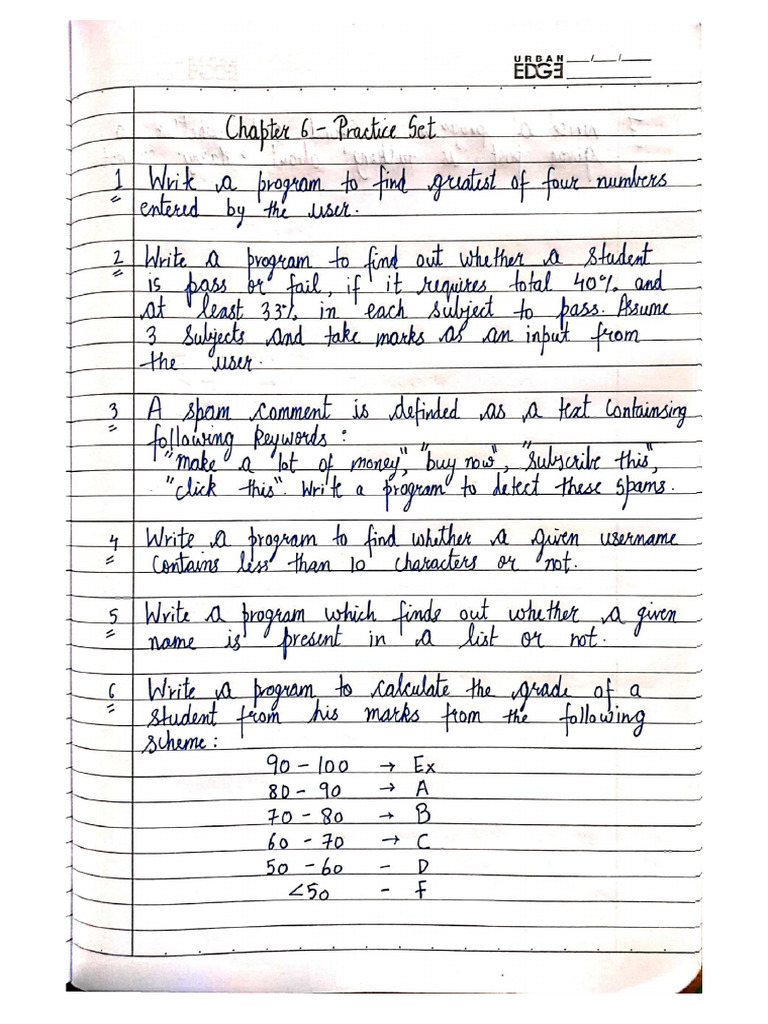 URBAN
EDGE __/__/__
Chapter 6 - Practice Set
1 Write a program to find greatest of four numbers
entered by the user.
2 Write a program to find out whether a student
is pass or fail, if it requires total 40% and
at least 33% in each subject to pass. Assume
3 subjects and take marks as an input from
the user.
3 A spam comment is definded as a text containsing
following keywords :
"make a lot of money", "buy now", "subscribe this",
"click this". Write a program to detect these spams.
4 Write a program to find whether a given username
contains less than 10 characters or not.
5 Write a program which finds out whether a given
name is present in a list or not.
6 Write a program to calculate the grade of a
student from his marks from the following
scheme :
90 - 100 → Ex
80 - 90 → A
70 - 80 → B
60 - 70 → C
50 - 60 - D
<50 - F